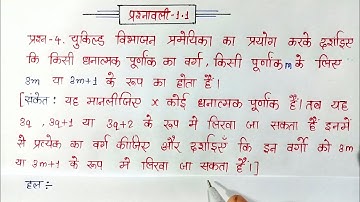 प्रश्नावली-1.1
प्रश्न-4. युक्लिड विभाजन प्रमेयिका का प्रयोग करके दर्शाइए
कि किसी धनात्मक पूर्णांक का वर्ग, किसी पूर्णांक m के लिए
3m या 3m+1 के रूप का होता है।
[संकेत: यह मानलीजिए x कोई धनात्मक पूर्णांक है। तब यह
3q, 3q+1 या 3q+2 के रूप में लिखा जा सकता है इनमें
से प्रत्येक का वर्ग कीजिए और दर्शाइएँ कि इन वर्गो को 3m
या 3m+1 के रूप में लिखा जा सकता है।]
हल:-